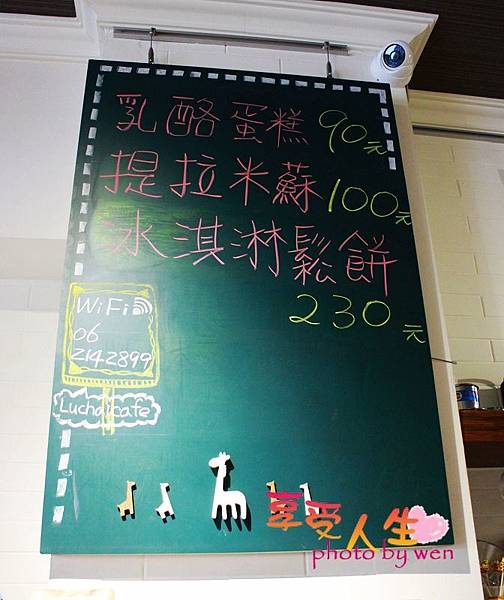 乳酪蛋糕 90元
提拉米蘇 100元
冰淇淋鬆餅
230元
WiFi
06
214.2899
Luchaicafe
享受人生
photo by wen